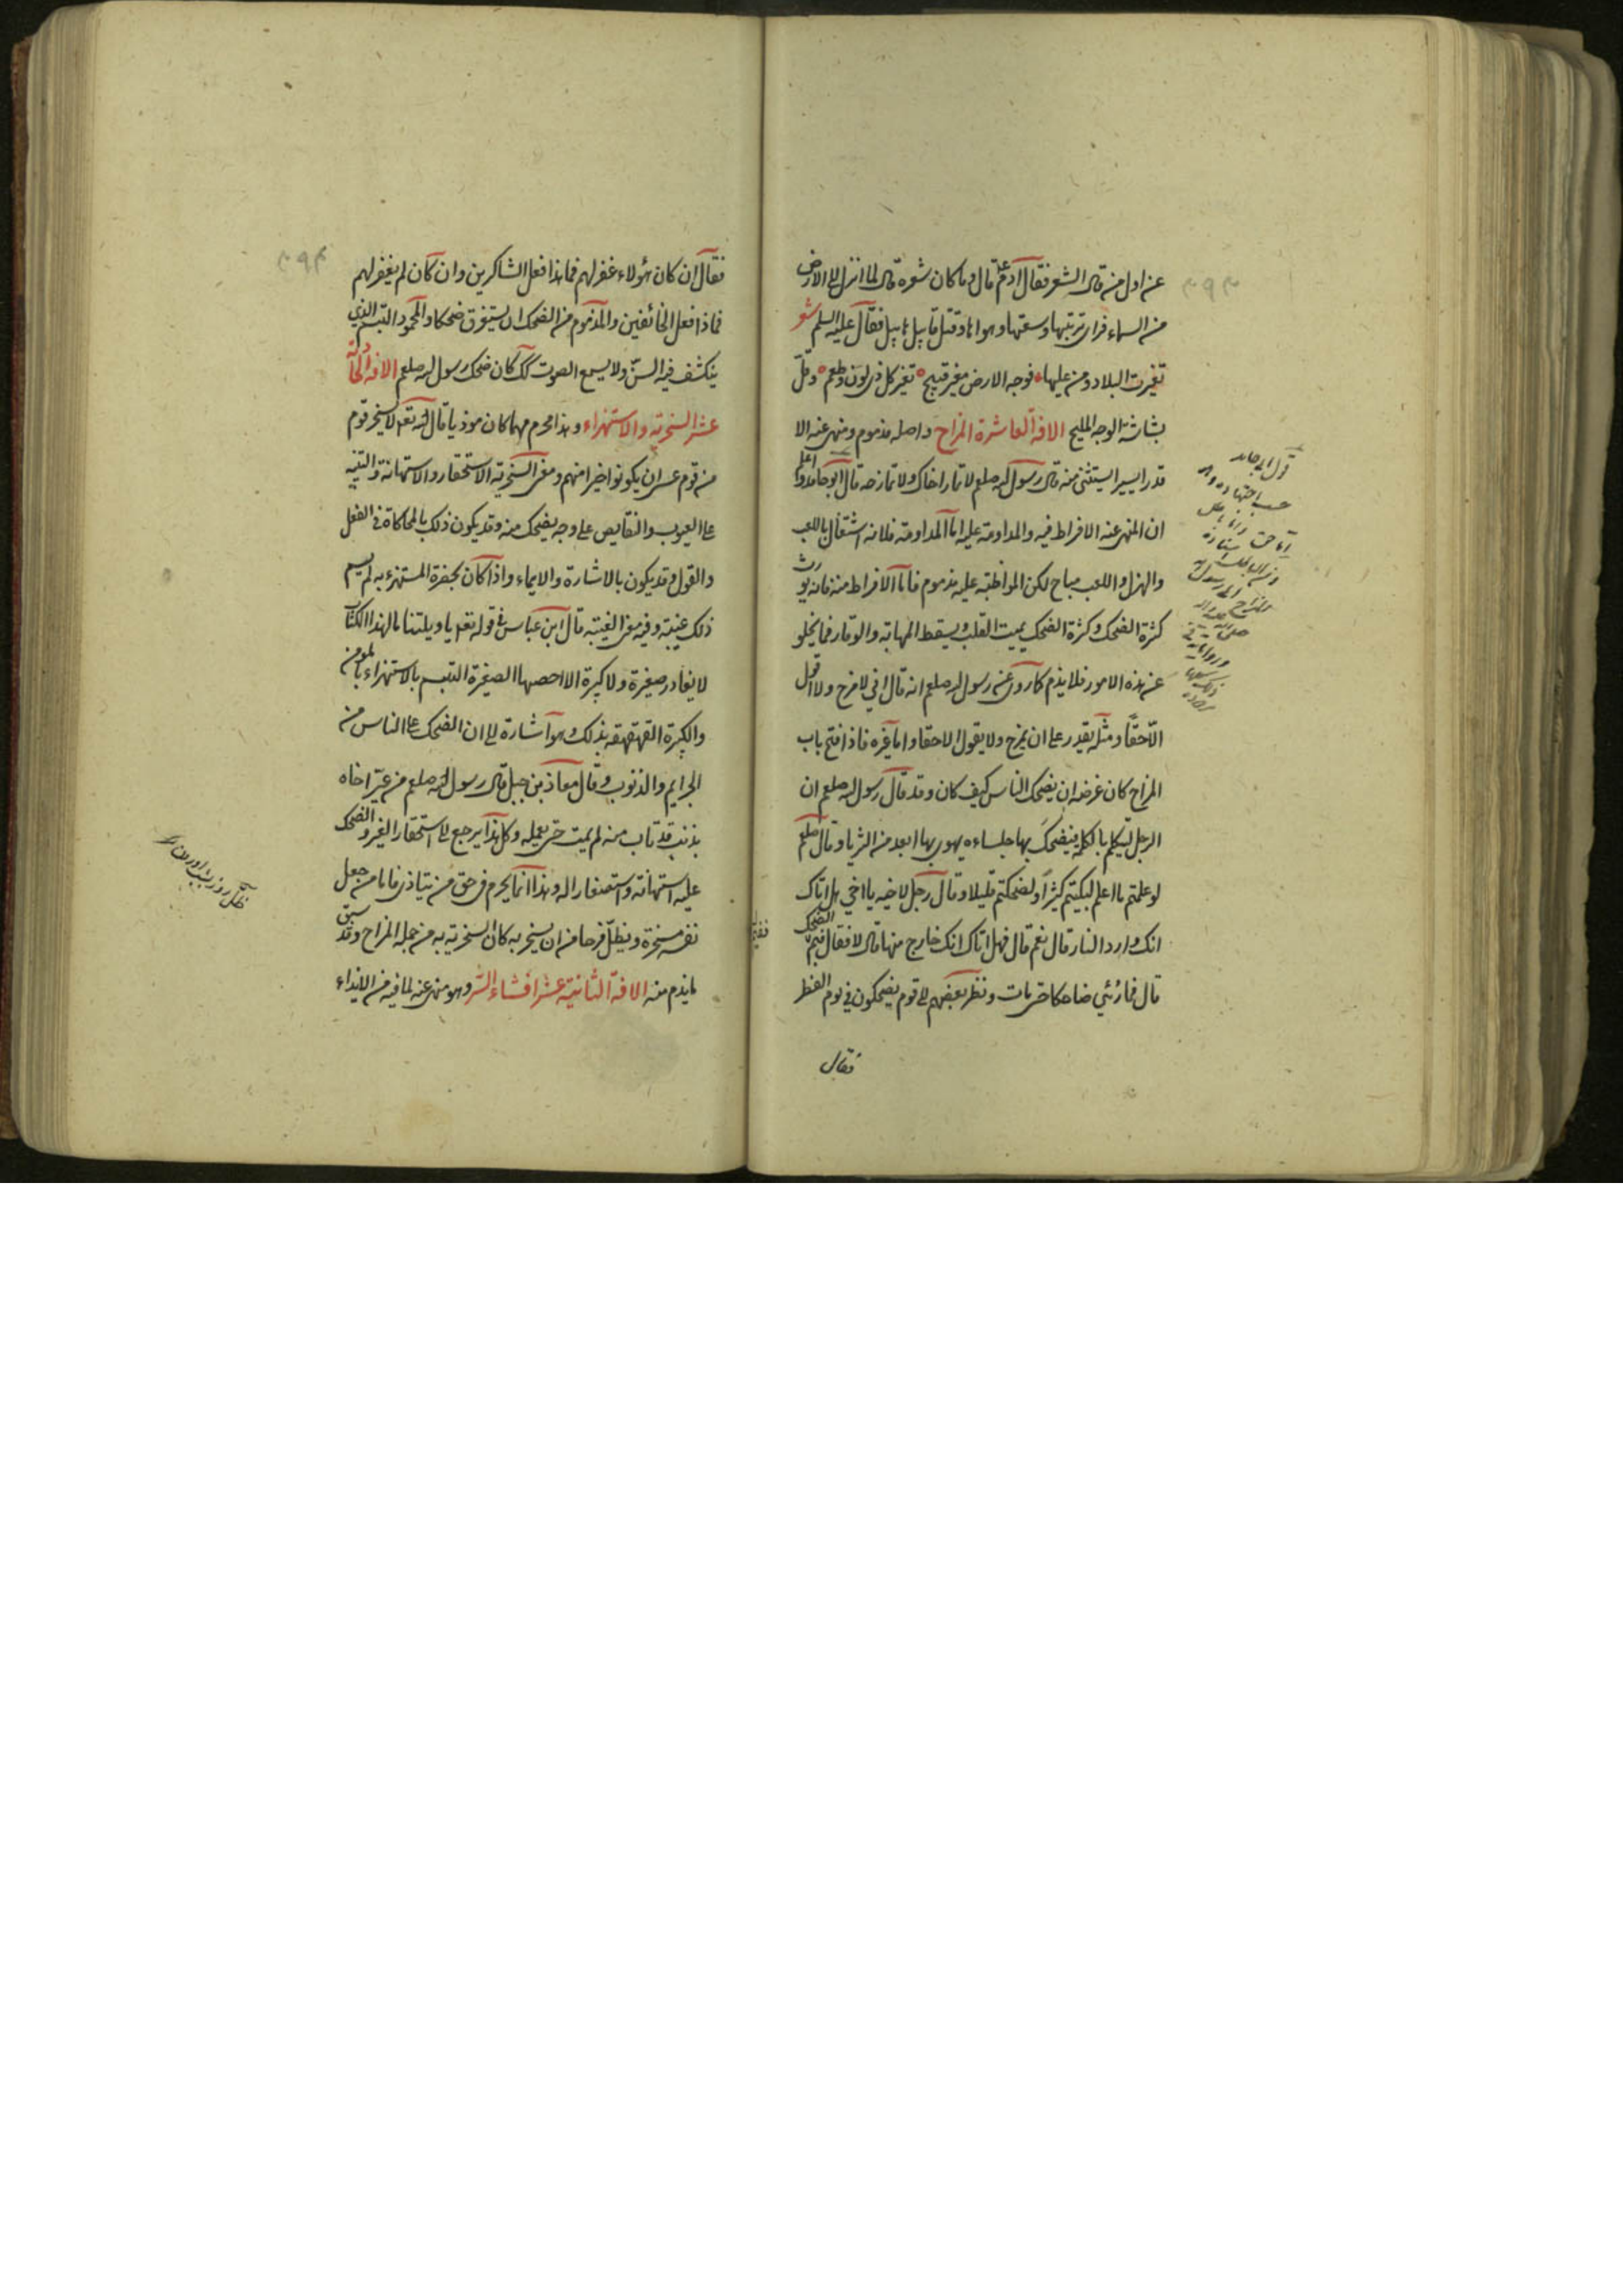 عن اول من قال الشعر فقال آدم ع قال وما كان شعره قال لما انزل الى الارض
من السماء فراى تربتها وسعتها وهواءها وقتل قابيل هابيل فقال عليه السلم شعر
تغيرت البلاد ومن عليها فوجه الارض مغبر قبيح تغير كل ذى لون وطعم وقل
بشاشة الوجه المليح الافة العاشرة المزاح واصله مذموم ومنهى عنه الا
قدر اليسير يستثنى منه قال رسول الله صلعم لا تمار اخاك ولا تمازحه قال ابو حامد واعلم
ان المنهى عنه الافراط فيه والمداومة عليه اما المداومة فلانه اشتغال باللعب
والهزل واللعب مباح لكن المواظبة عليه مذموم فاما الافراط منه فانه يورث
كثرة الضحك وكثرة الضحك يميت القلب ويسقط المهابة والوقار فما يخلو
عن هذه الامور فلا يذم كما روى عن رسول الله صلعم انه قال انى لامزح ولا اقول
الا حقا ومثله يقدر على ان يمزح ولا يقول الا حقا واما غيره فاذا فتح باب
المزاح كان غرضه ان يضحك الناس كيف كان وقد قال رسول الله صلعم ان
الرجل ليتكلم بالكلمة فيضحك بها جلساءه يهوى بها ابعد من الثريا وقال صلعم
لو علمتم ما اعلم لبكيتم كثيرا ولضحكتم قليلا وقال رجل لاخيه يا اخى هل اتاك
انك وارد النار قال نعم قال فهل اتاك انك خارج منها قال لا فقال ففيم الضحك
قال فما رُئى ضاحكا حتى مات ونظر بعضهم الى قوم يضحكون فى يوم الفطر
فقال
فقال ان كان هؤلاء غفر لهم فما هذا فعل الشاكرين وان كان لم يغفر لهم
فما ذا فعل الخائفين والمذموم من الضحك ان يستغرق ضحكا والمحمود التبسم الذى
ينكشف فيه السن ولا يسمع الصوت كك كان ضحك رسول الله صلعم الافة الحادية
عشر السخرية والاستهزاء وهذا محرم مهما كان موذيا قال الله تعه لا يسخر قوم
من قوم عسى ان يكونوا خيرا منهم ومعنى السخرية الاستحقار والاستهانة والتنبيه
على العيوب والنقايص على وجه يضحك منه وقد يكون ذلك بالمحاكاة فى الفعل
والقول وقد يكون بالاشارة والايماء واذا كان بحضرة المستهزء به لم يسم
ذلك غيبة وفيه معنى الغيبة قال ابن عباس فى قوله تعه يا ويلتنا ما لهذا الكتاب
لا يغادر صغيرة ولا كبيرة الا احصيها الصغيرة التبسم بالاستهزاء بالمومن
والكبيرة القهقهة بذلك وهو اشارة الى ان الضحك على الناس من
الجرايم والذنوب وقال معاذ بن جبل قال رسول الله صلعم من عيّر اخاه
بذنب قد تاب منه لم يمت حتى يعمله وكل هذا يرجع الى استحقار الغير والضحك
عليه استهانة واستصغارا له وهذا انما يحرم فى حق من يتاذى فاما من جعل
نفسه مسخرة ويظلّ فرحا من ان يسخر به كان السخرية به من جملة المزاح وقد سبق
ما يذم منه الافة الثانية عشر افشاء السر وهو منهى عنه لما فيه من الايذاء